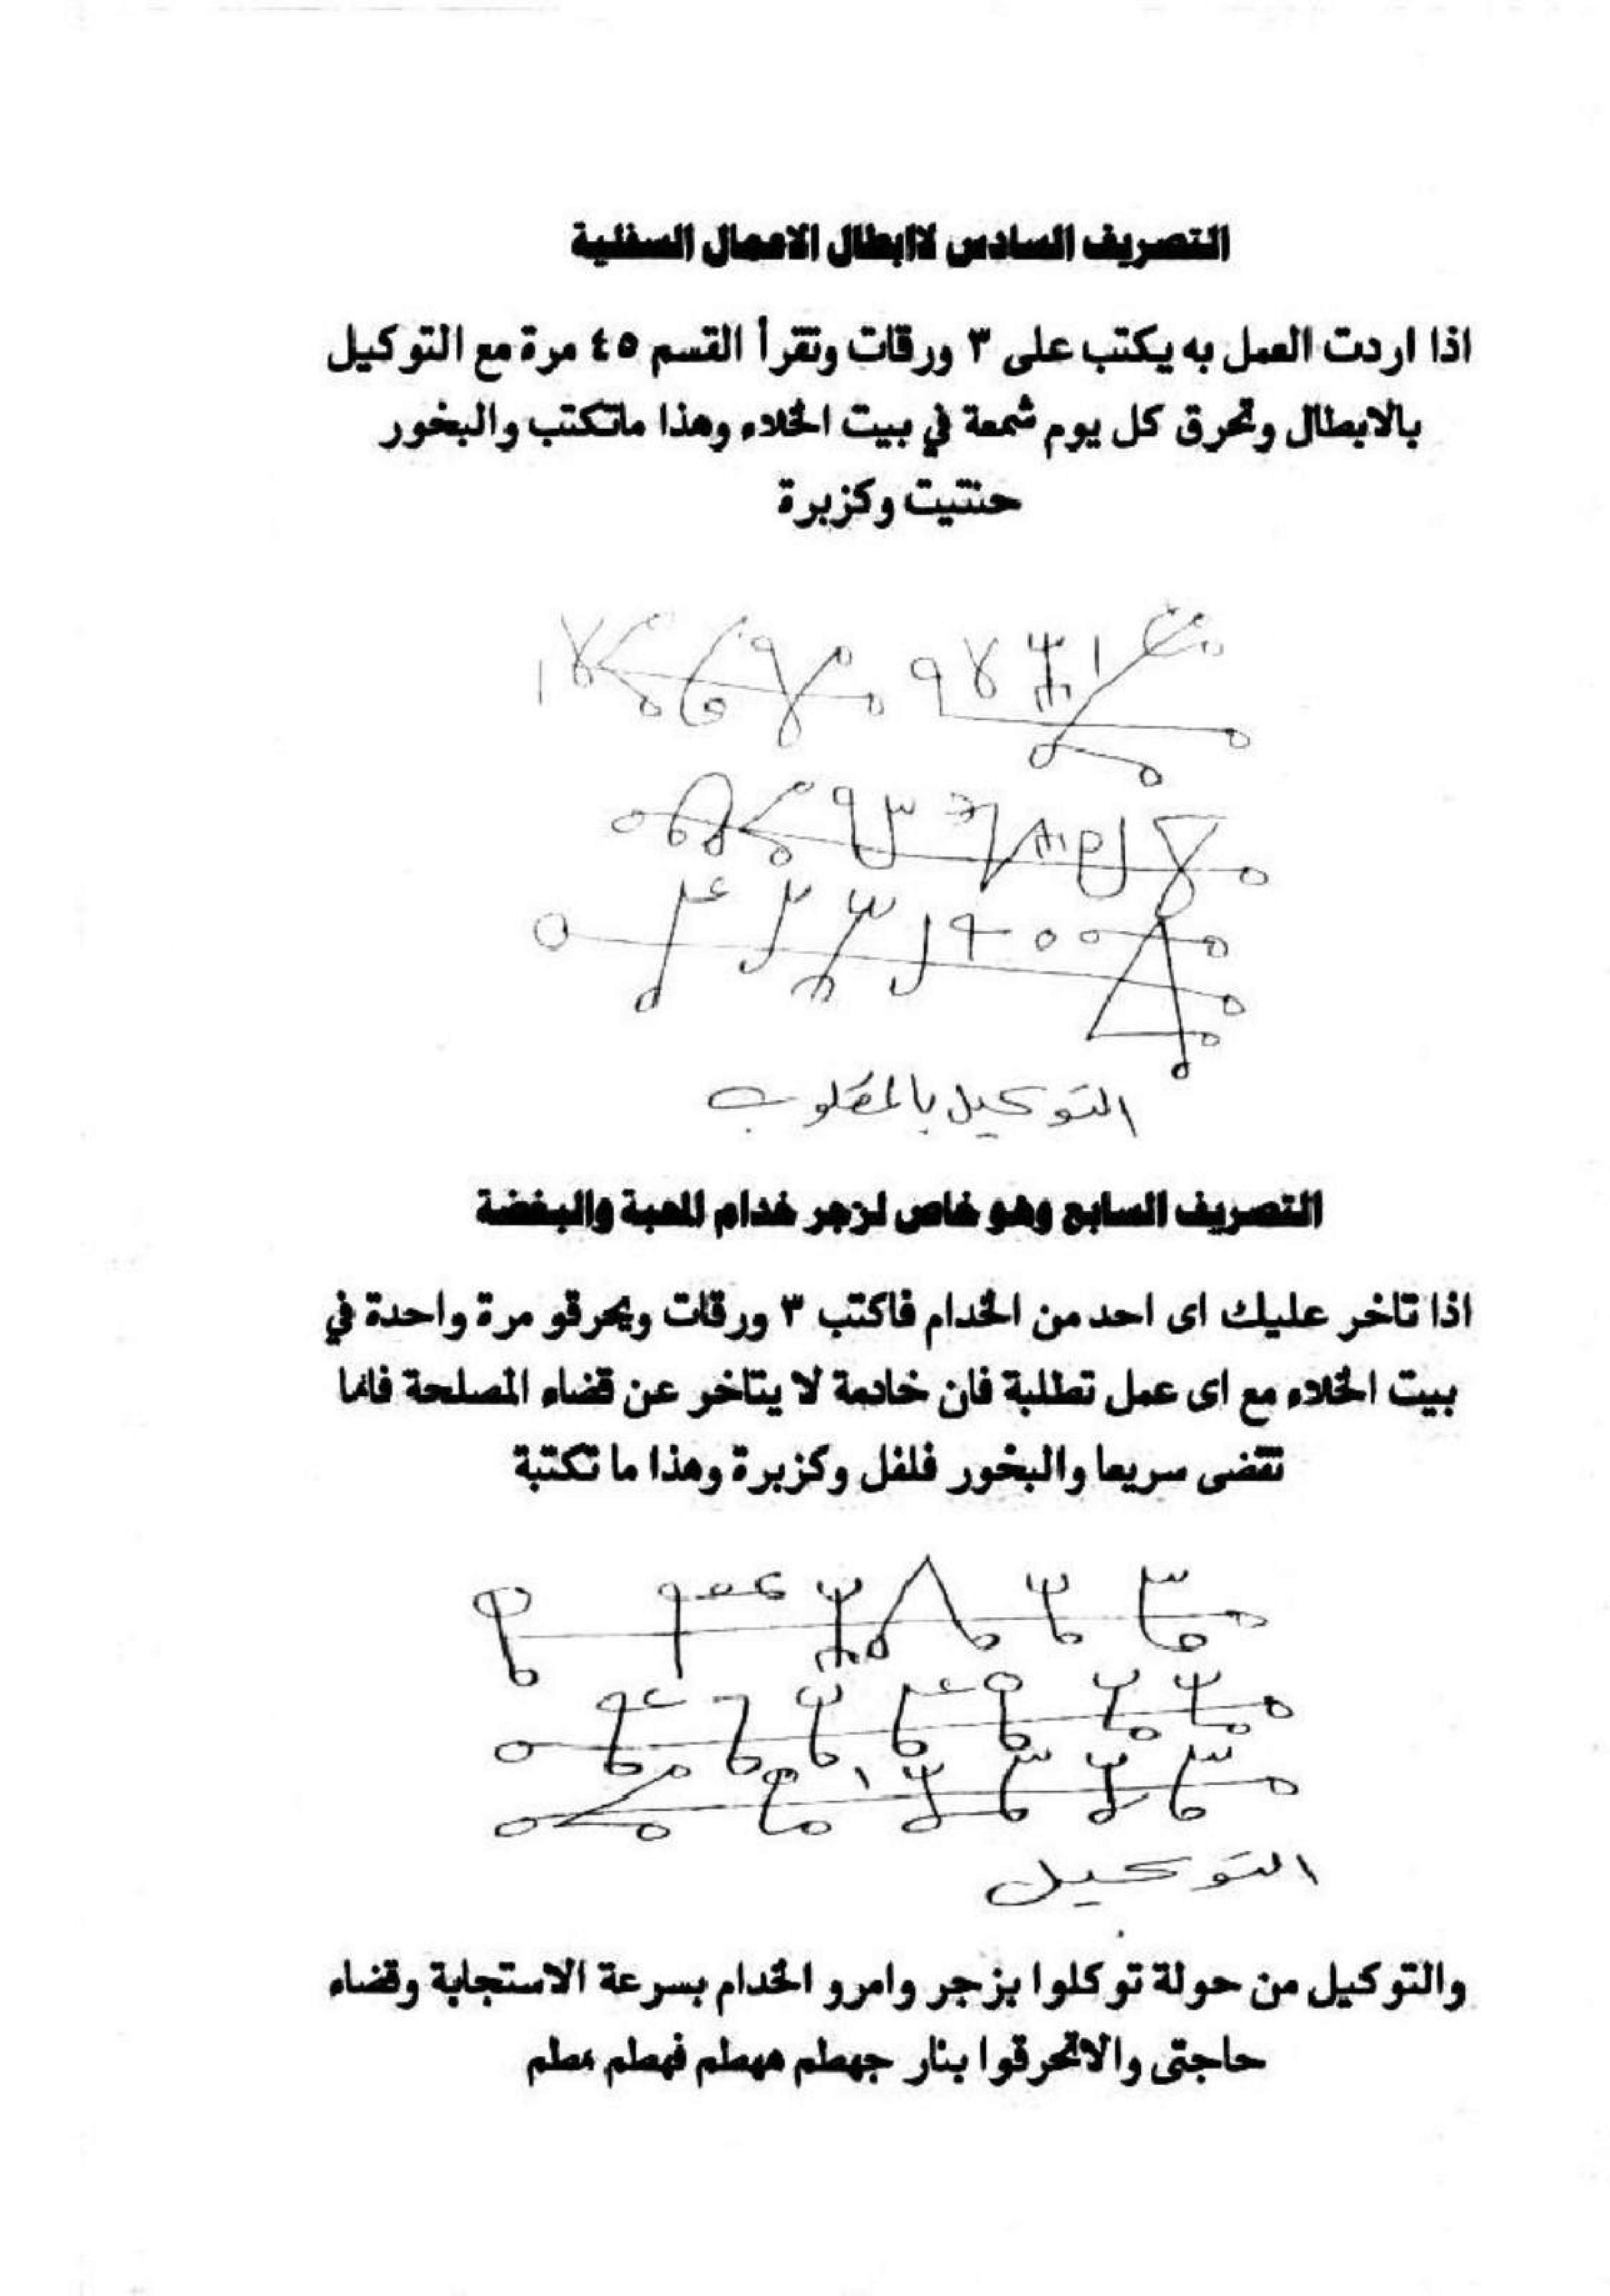 التصريف السادس لاابطال الاعمال السفلية
اذا اردت العمل به يكتب على ٣ ورقات وتقرأ القسم ٤٥ مرة مع التوكيل
بالابطال وتحرق كل يوم شمعة في بيت الخلاء وهذا ماتكتب والبخور
حنتيت وكزبرة
التوكيل بالمطلوب
التصريف السابع وهو خاص لزجر خدام المحبة والبغضة
اذا تاخر عليك اى احد من الخدام فاكتب ٣ ورقات ويحرقو مرة واحدة في
بيت الخلاء مع اى عمل تطلبة فان خادمة لا يتاخر عن قضاء المصلحة فانما
تقضى سريعا والبخور فلفل وكزبرة وهذا ما تكتبة
التوكيل
والتوكيل من حولة توكلوا بزجر وامرو الخدام بسرعة الاستجابة وقضاء
حاجتى والاتحرقوا بنار جهطم ههطم فهطم